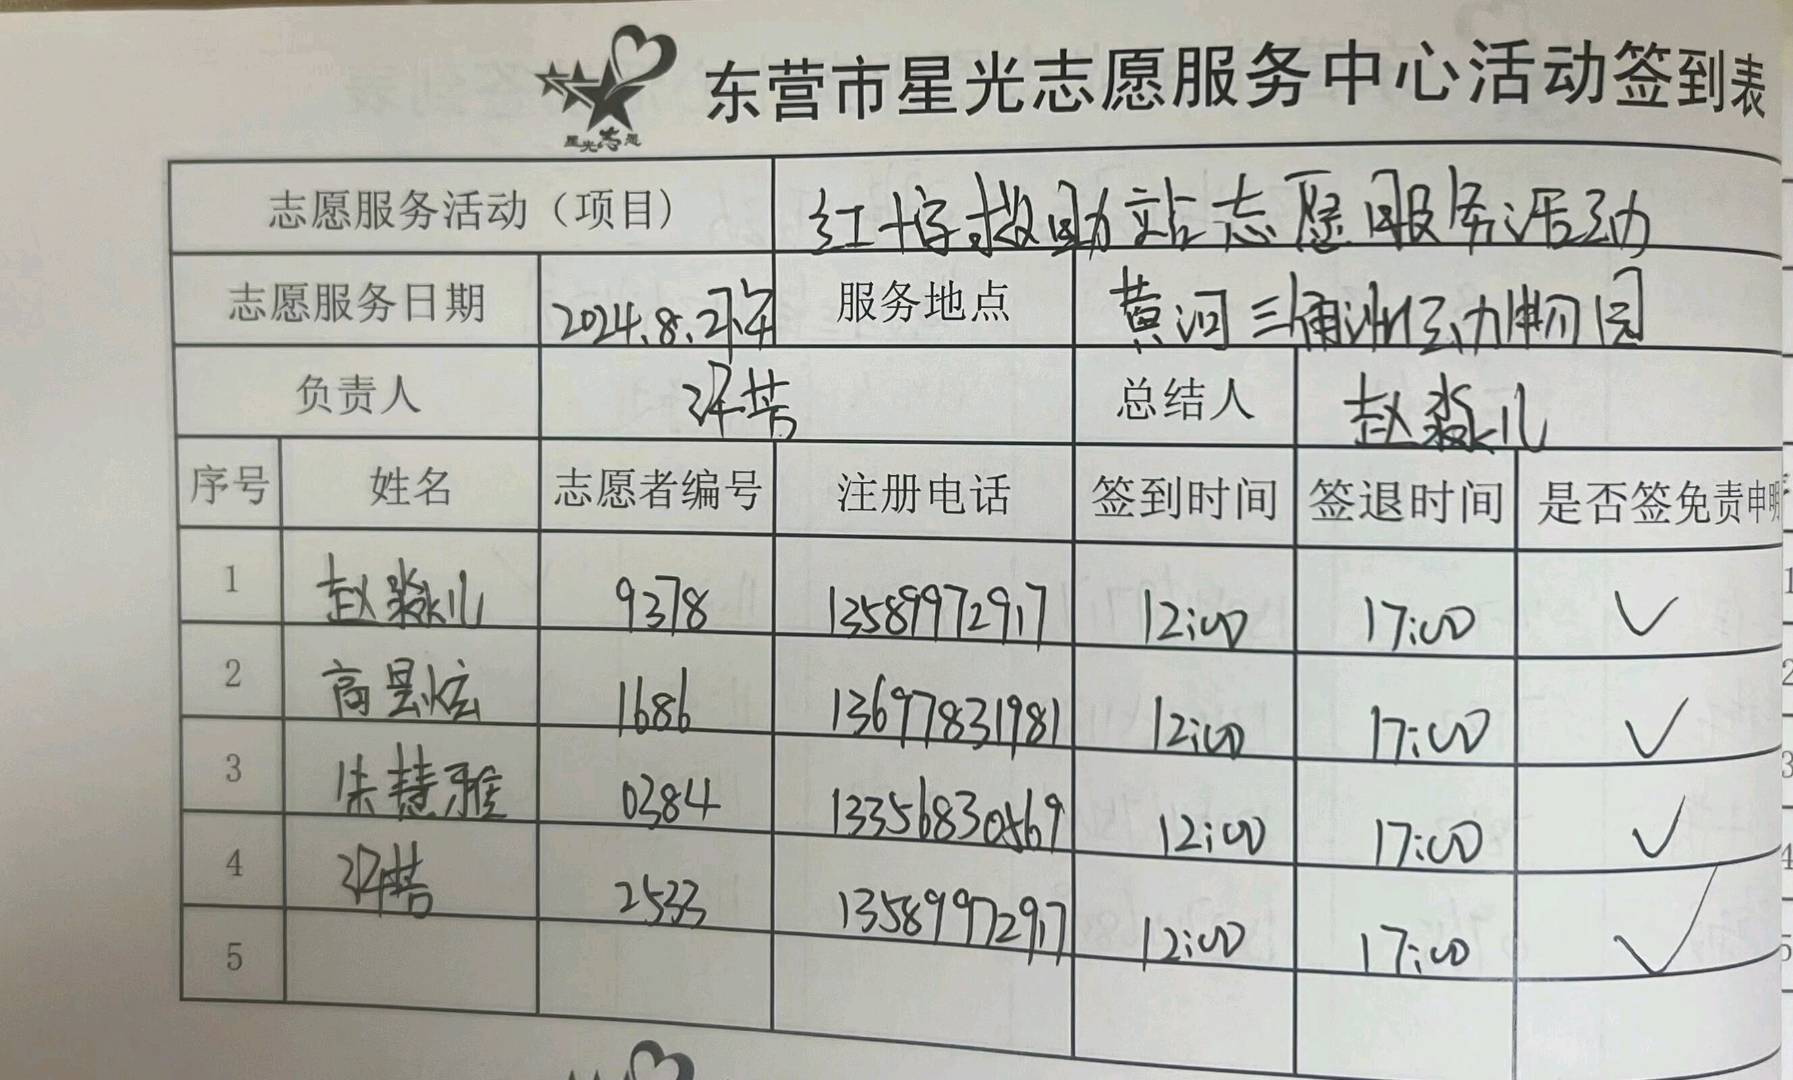 星光志愿
东营市星光志愿服务中心活动签到表
志愿服务活动（项目） 红十字救助站志愿服务活动
志愿服务日期 2024.8.2下午 服务地点 黄河三角洲动物园
负责人 总结人 赵淼儿
序号 姓名 志愿者编号 注册电话 签到时间 签退时间 是否签免责申明
1 赵淼儿 9378 13589972917 12:00 17:00 ✓
2 高昙炫 1686 13697831981 12:00 17:00 ✓
3 朱慧雅 0384 13356830569 12:00 17:00 ✓
4 2533 13589972917 12:00 17:00 ✓
5